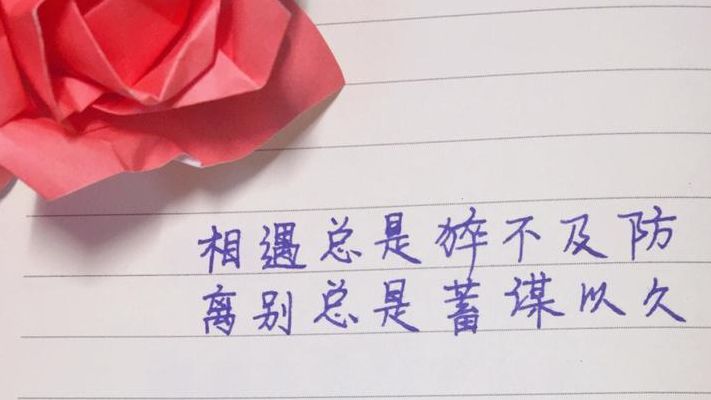 相遇总是猝不及防
离别总是蓄谋以久